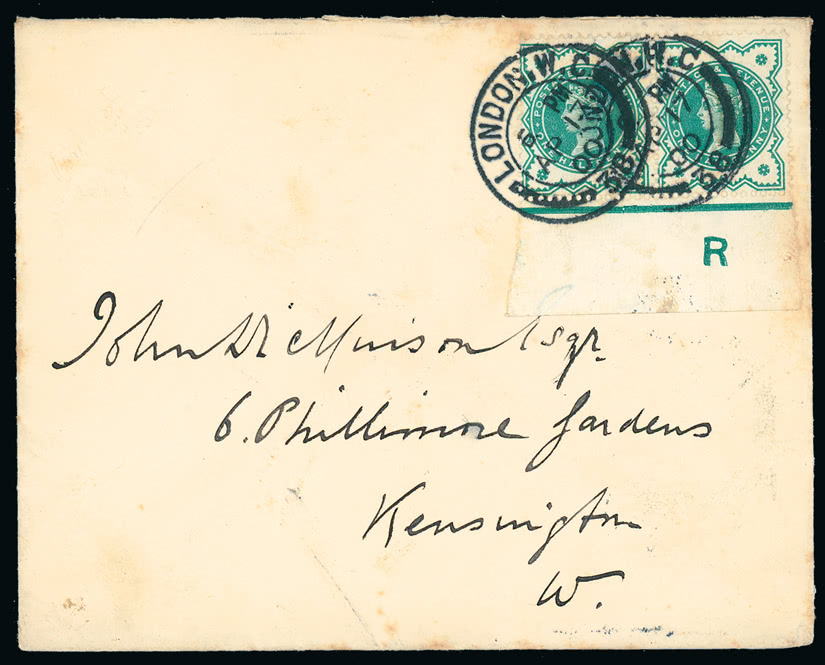 LONDON.W.C
PM
17
00
PM
17
00
R
John Esqr.
6. Phillimore Gardens
Kensington
W.